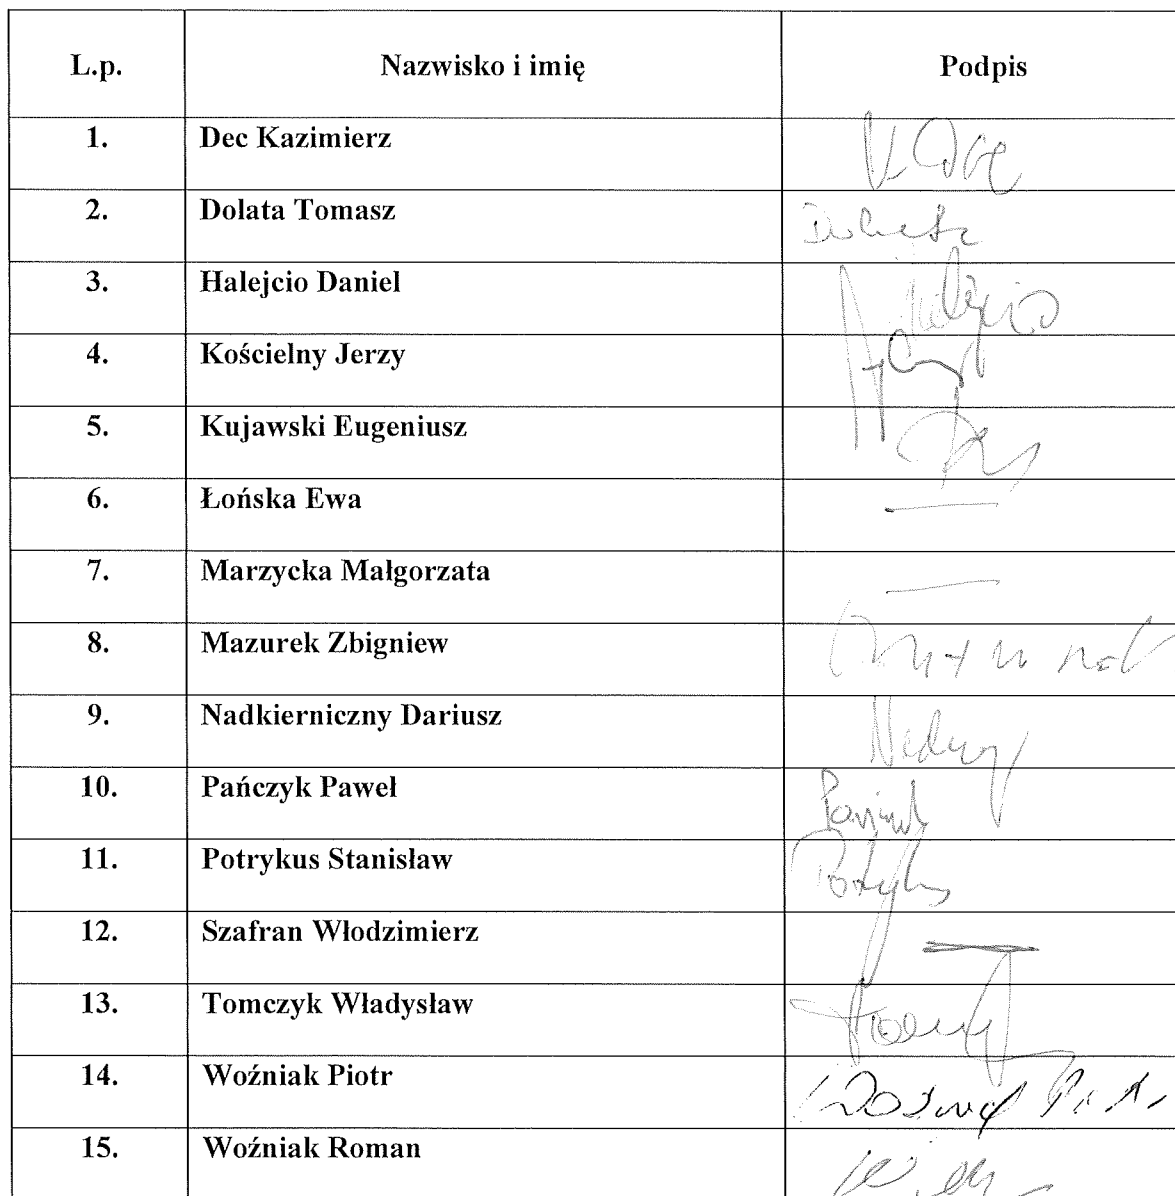 L.p. Nazwisko i imię Podpis
1. Dec Kazimierz
2. Dolata Tomasz Dolata
3. Halejcio Daniel
4. Kościelny Jerzy
5. Kujawski Eugeniusz
6. Łońska Ewa —
7. Marzycka Małgorzata —
8. Mazurek Zbigniew
9. Nadkierniczny Dariusz
10. Pańczyk Paweł
11. Potrykus Stanisław
12. Szafran Włodzimierz —
13. Tomczyk Władysław
14. Woźniak Piotr
15. Woźniak Roman